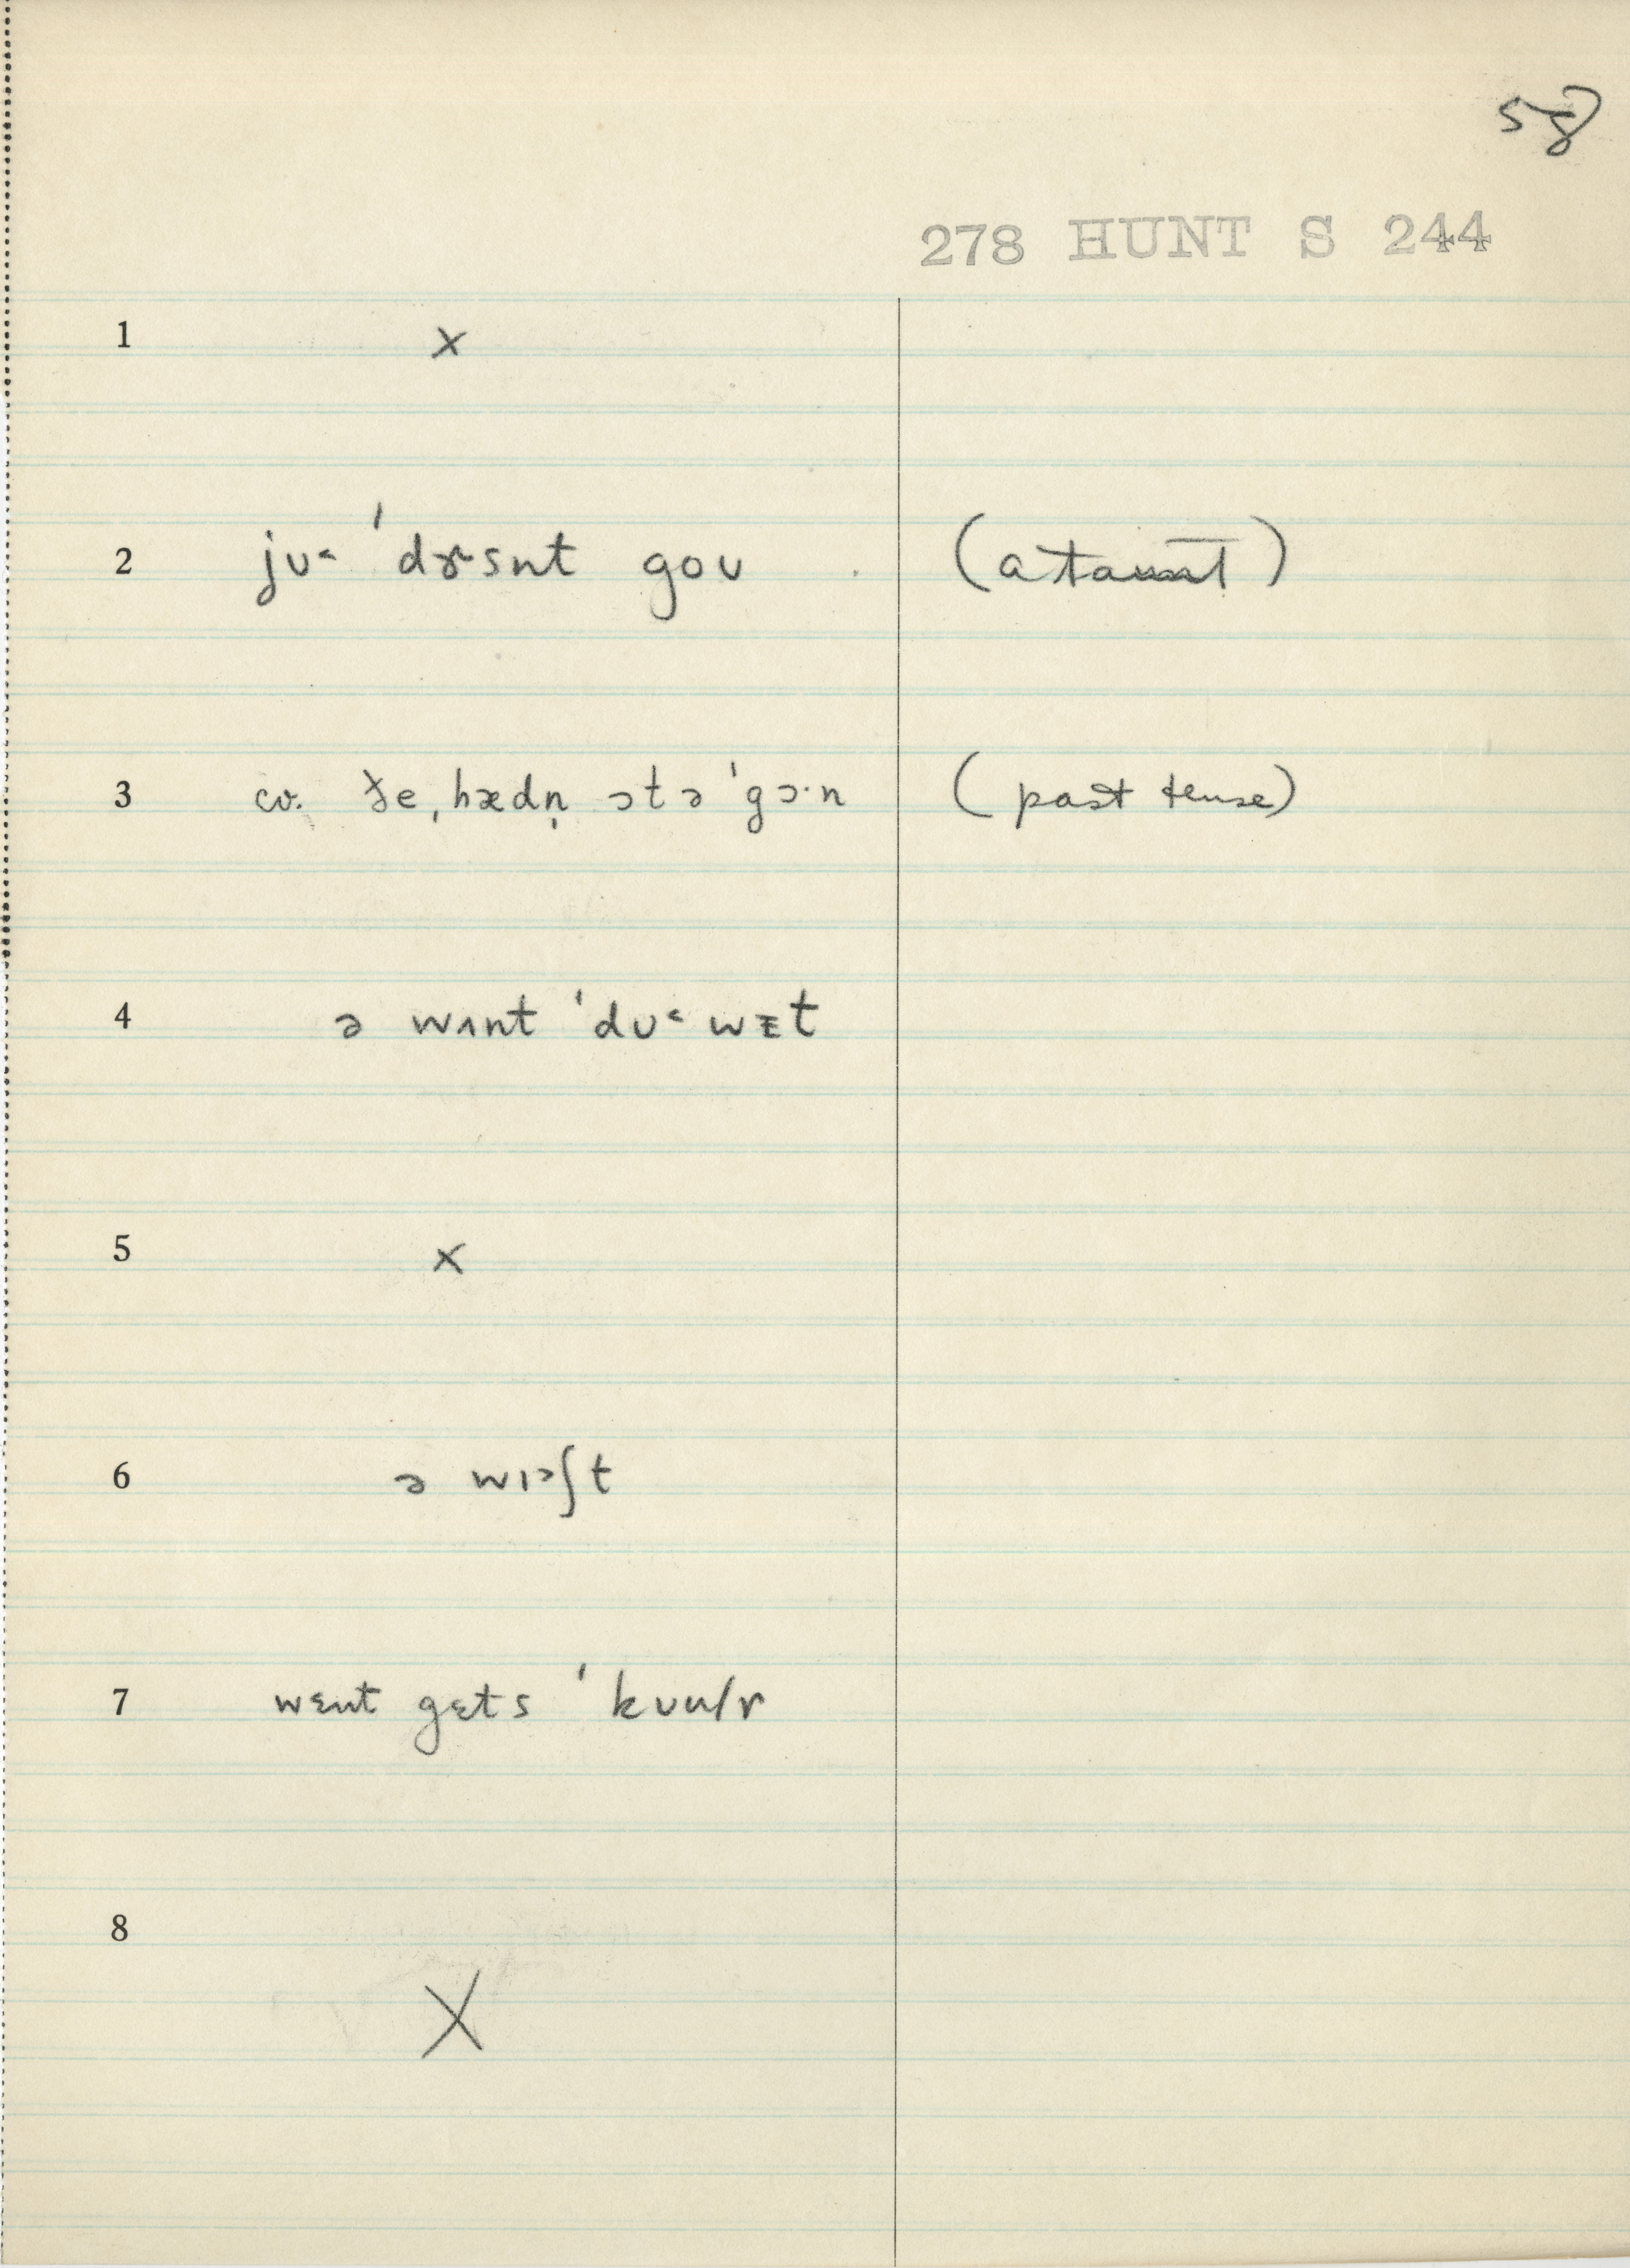 58
278 HUNT S 244
1 x
2 jʊ˂ ˈdɝsnt goʊ (a taunt)
3 cv. ðe ˌhædn̩ ɔtə ˈgɔ·n (past tense)
4 ə wʌnt ˈdʊ˂ wɪt
5 x
6 ə wɪəʃt
7 wɛnt gɛts ˈkʊu/r
8 X